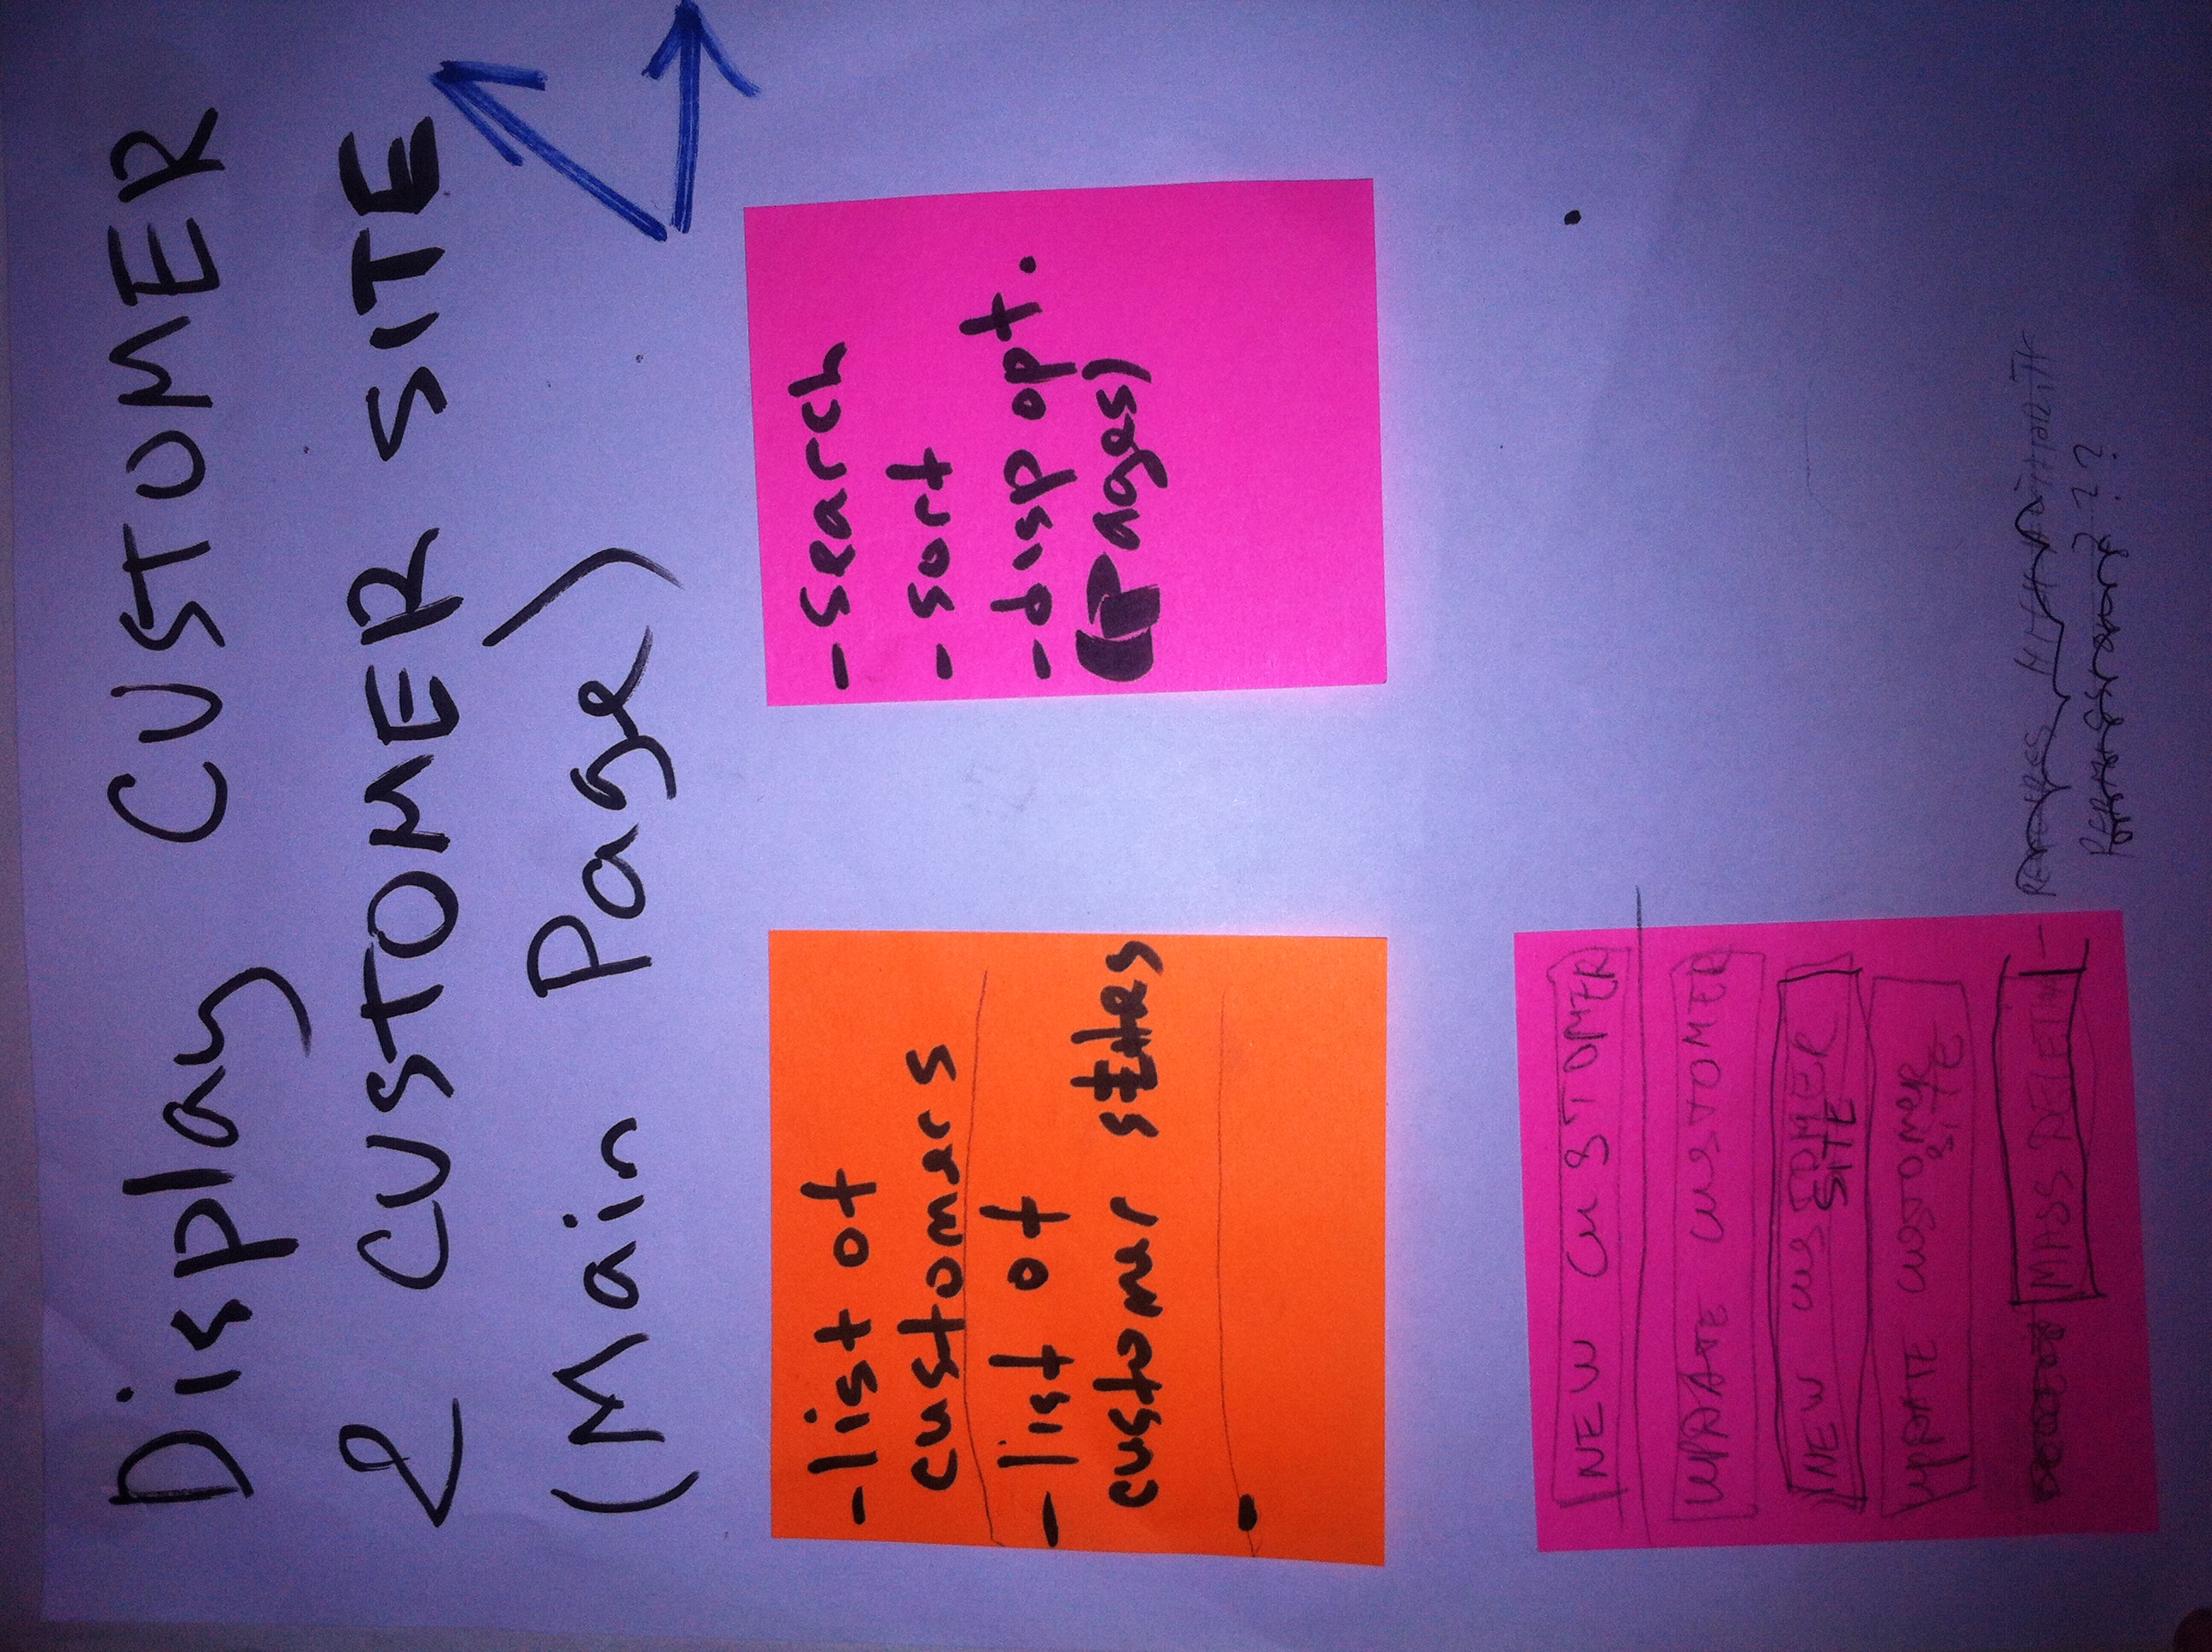 Display CUSTOMER
& CUSTOMER SITE
(Main Page)
-list of
customers
-list of
customer sites
-
-search
-sort
-disp opt.
(Pages)
NEW CUSTOMER
UPDATE CUSTOMER
NEW CUSTOMER
SITE
UPDATE CUSTOMER
SITE
MASS DELETION - REQUIRES HIGH AUTHORITY
???